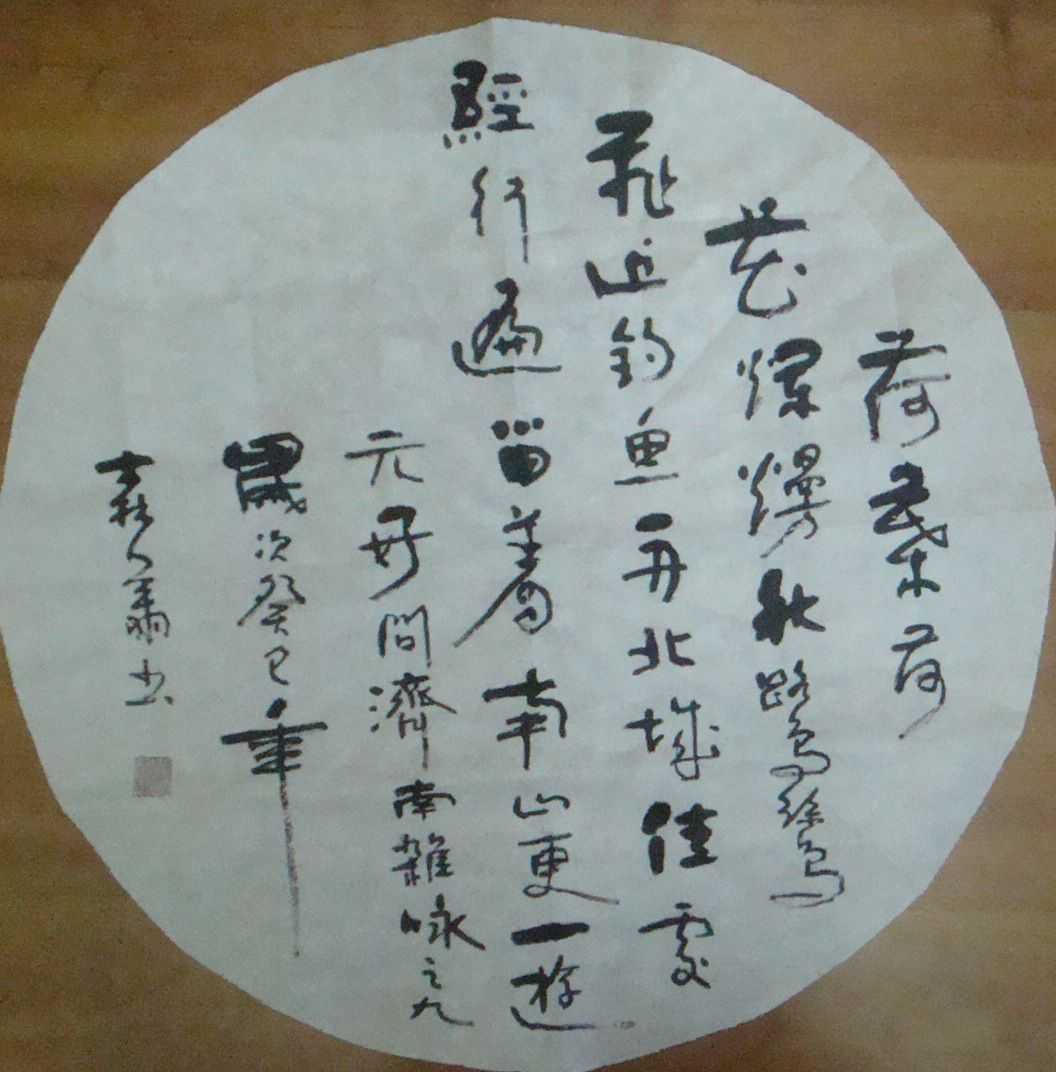 荷葉荷
花爛熳秋鷺鷥
飛近釣魚舟北城佳處
經行遍留著南山更一遊
元好問濟南雜咏之九
歲次癸巳年
书